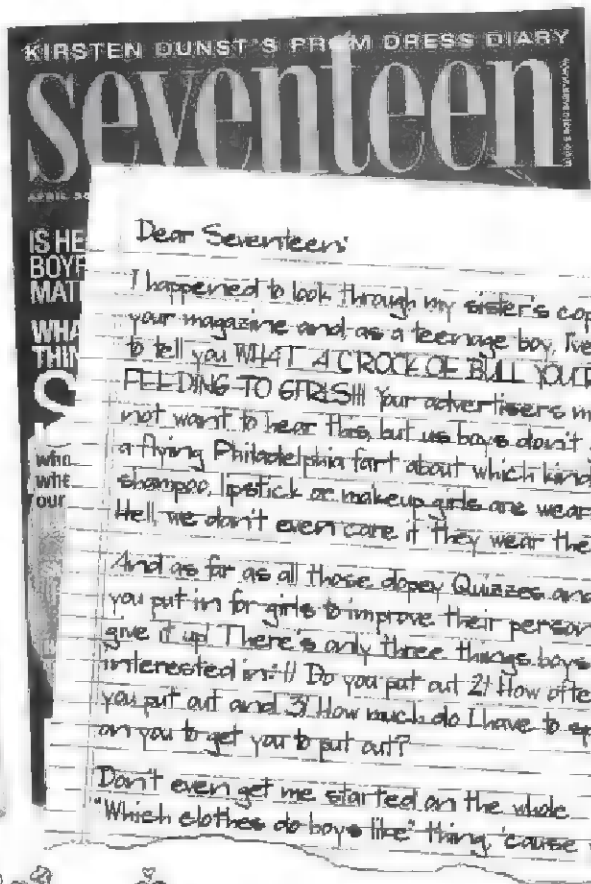 KIRSTEN DUNST'S PROM DRESS DIARY
seventeen
APRIL
IS HE
BOYF
MAT
WHA
THIN
who
whe
our
Dear Seventeen:
I happened to look through my sister's cop
your magazine and, as a teenage boy, I've
to tell you WHAT A CROCK OF BULL YOU'R
FEEDING TO GIRLS!!! Your advertisers m
not want to hear this, but us boys don't
a flying Philadelphia fart about which kind
shampoo, lipstick or makeup girls are wear
Hell, we don't even care if they wear the
And as far as all those dopey Quizzes and
you put in for girls to improve their person
give it up! There's only three things boys
interested in: 1) Do you put out 2) How ofte
you put out and 3) How much do I have to sp
on you to get you to put out?
Don't even get me started on the whole
"Which clothes do boys like" thing, 'cause